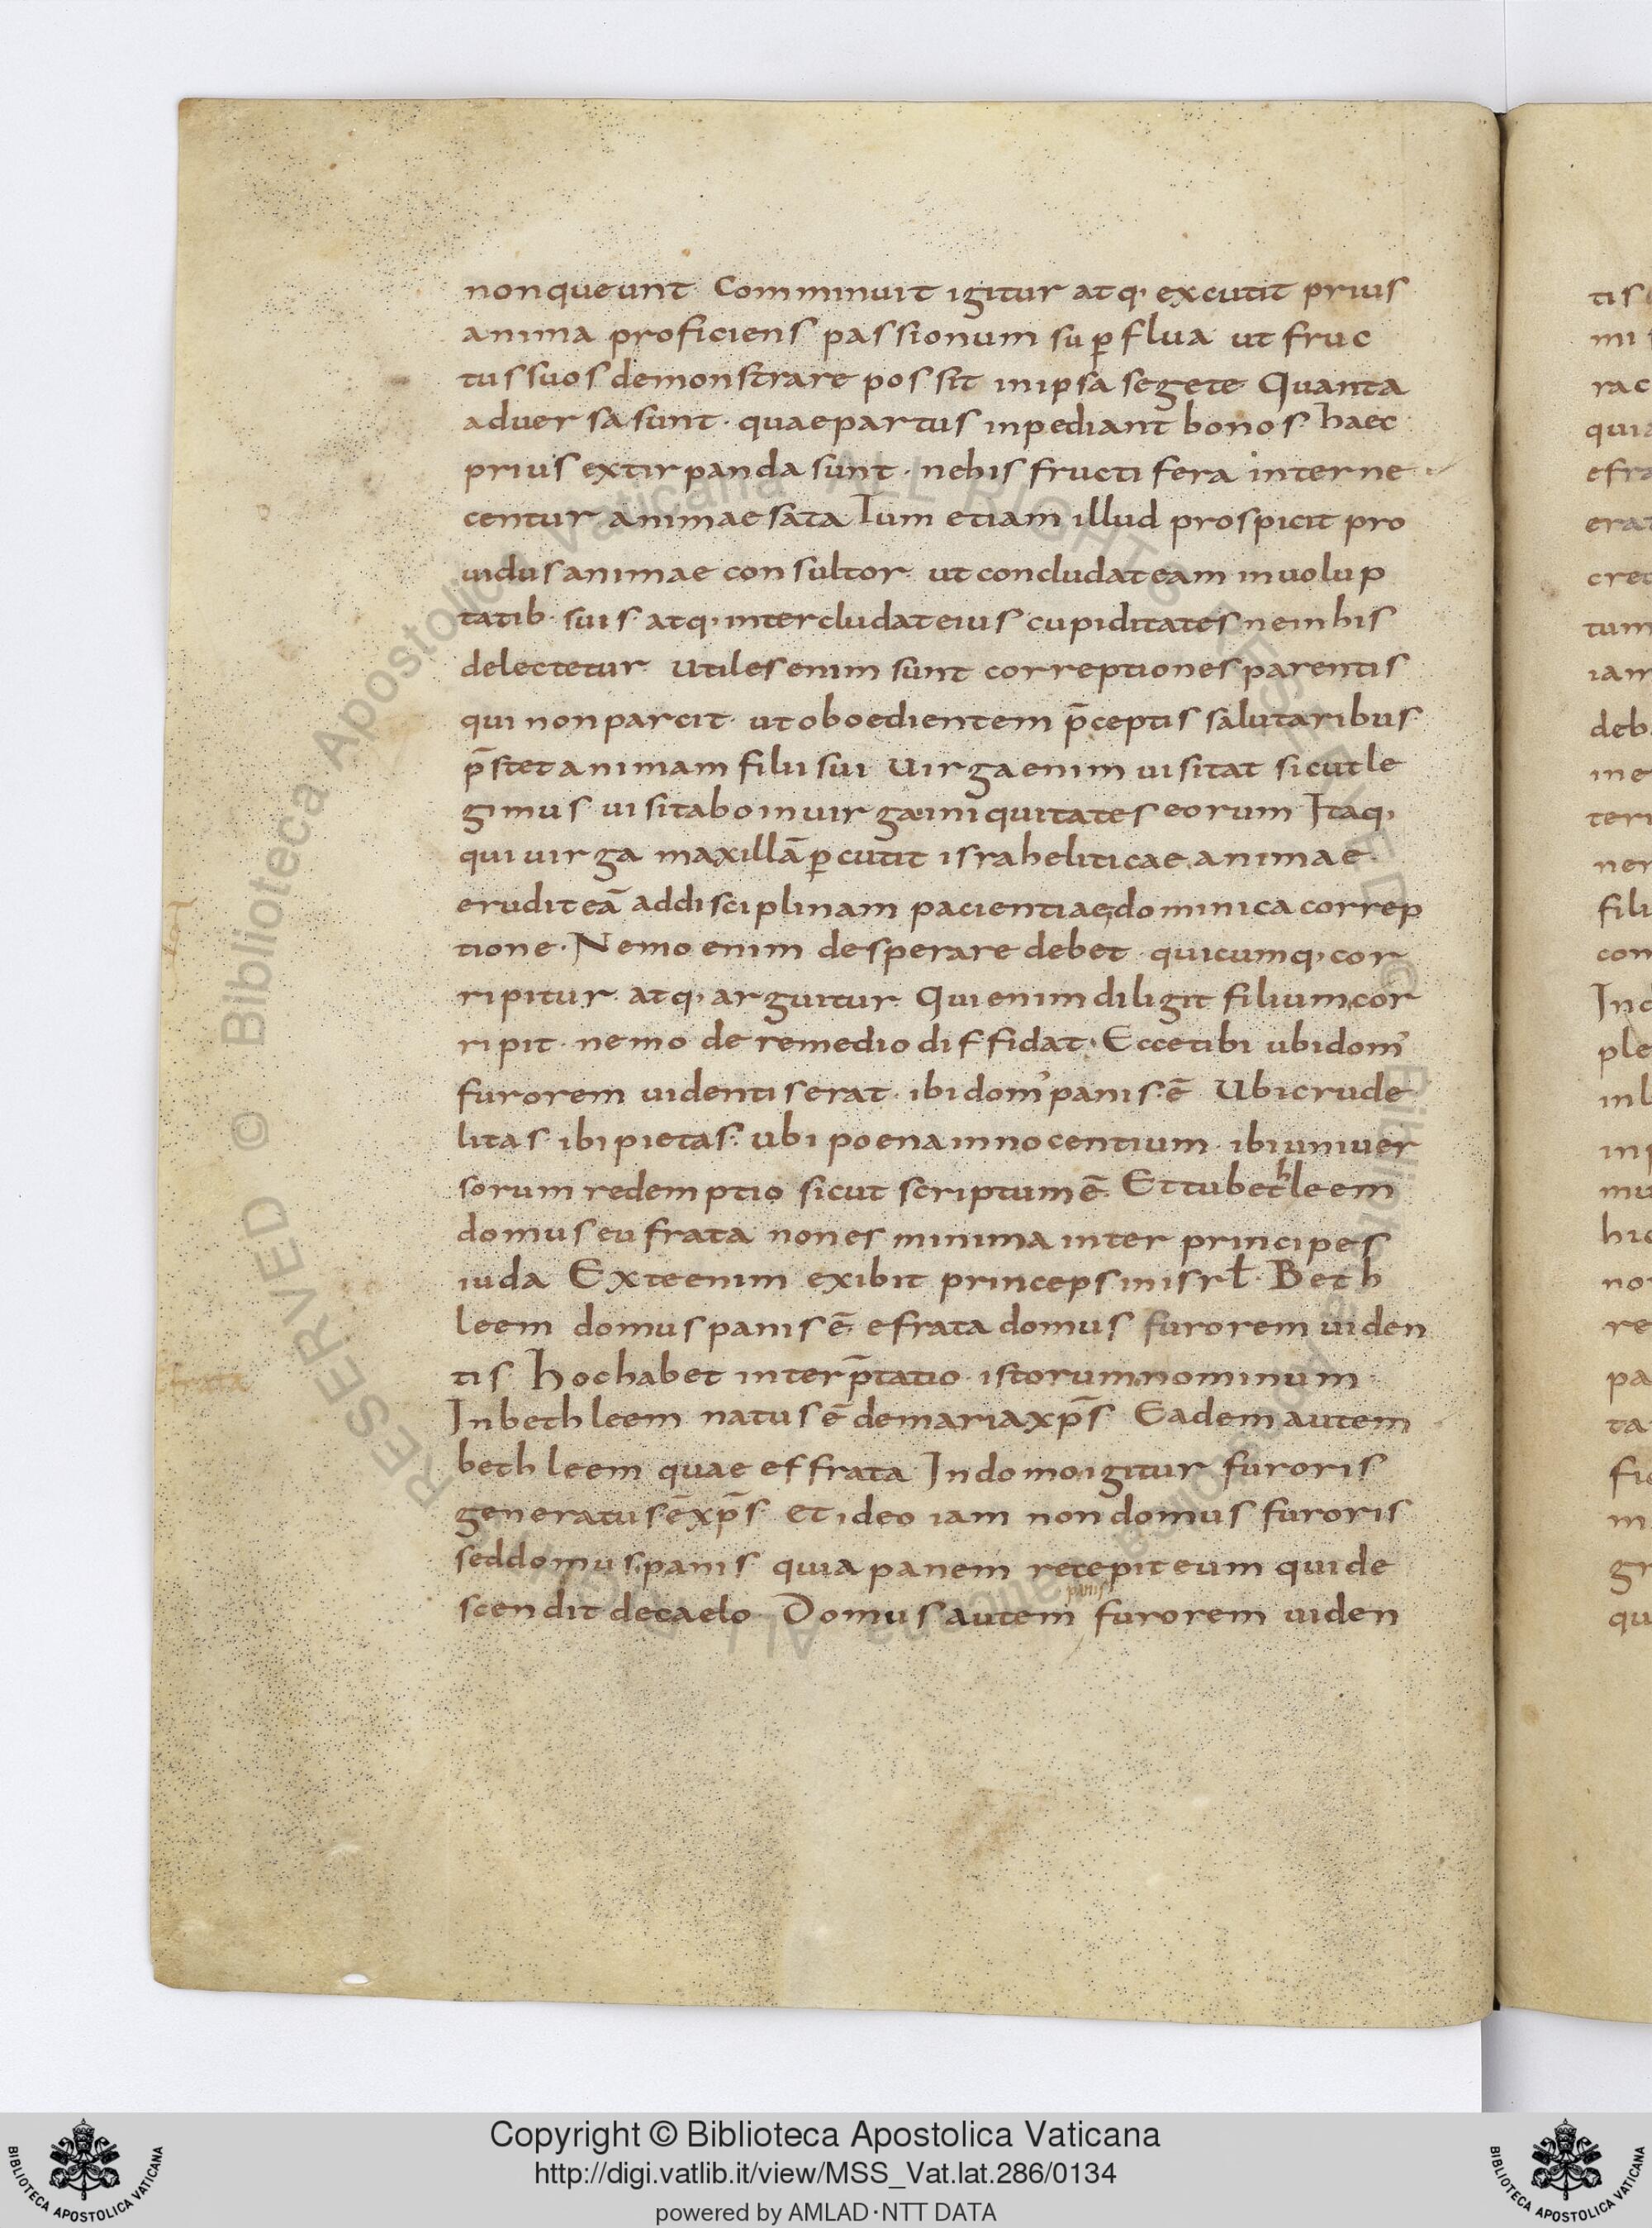 non queunt Comminuit igitur atq; excutit prius
anima proficiens passionum sup̄flua ut fruc
tus suos demonstrare possit in ipsa segete Quanta
aduersa sunt · quae partus inpediant bonos haec
prius extirpanda sunt · ne his fructifera interne
centur animae sata Tum etiam illud prospicit pro
uidus animae consultor ut concludat eam in uolup
tatib· suis atq; intercludat eius cupiditates ne in his
delectetur Utiles enim sunt correptiones parentis
qui non parcit · ut oboedientem p̄ceptis salutaribus
p̄stet animam filii sui Uirga enim uisitat sicut le
gimus uisitabo in uirga iniquitates eorum Itaq;
qui uirga maxillā p̄cutit israheliticae animae
erudit eā ad disciplinam pacientiae dominica correp
tione · Nemo enim desperare debet quicumq; cor
ripitur atq; arguitur Qui enim diligit filium cor
ripit · nemo de remedio diffidat · Ecce tibi ubi dom'
furorem uidentis erat · ibi dom' panis ē Ubi crude
litas ibi pietas · ubi poena innocentium · ibi uniuer
sorum redemptio sicut scriptum ē Et tu bethleem
domus eufrata non es minima inter principes
iuda Ex te enim exibit princeps in isrł · Beth
leem domus panis ē efrata domus furorem uiden
tis Hoc habet interp̄tatio istorum nominum
In bethleem natus ē de maria xp̄s Eadem autem
bethleem quae effrata In domo igitur furoris
generatus ē xp̄s et ideo iam non domus furoris
sed domus panis quia panem recepit eum qui de
panis
scendit de caelo Domus autem furorem uiden
tis
rac
quia
tum
deb
fili
con
ple
mu
hic
re
pa
ta
qu
© Biblioteca Apostolica Vaticana ALL RIGHTS RESERVED
Copyright © Biblioteca Apostolica Vaticana
http://digi.vatlib.it/view/MSS_Vat.lat.286/0134
powered by AMLAD·NTT DATA
BIBLIOTECA APOSTOLICA VATICANA
BIBLIOTECA APOSTOLICA VATICANA